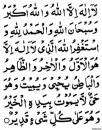 لَا إِلَهَ إِلَّا اللهُ وَاللهُ أَكْبَرُ
وَسُبْحَانَ اللهِ وَالْحَمْدُ لِلّهِ
أَسْتَغْفِرُ اللهَ الَّذِى لَا إِلَهَ إِلَّا
هُوَ الْأَوَّلُ وَالْآخِرُ وَالظَّاهِرُ
وَالْبَاطِنُ يُحْيِى وَيُمِيتُ وَهُوَ
حَيٌّ لَا يَمُوتُ بِيَدِهِ الْخَيْرُ
وَهُوَ عَلَى كُلِّ شَيْءٍ قَدِيرٌ